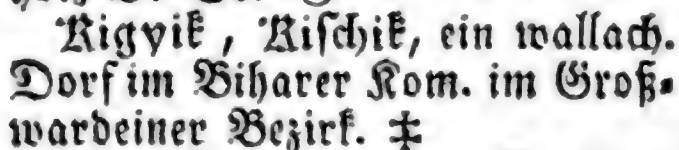 Rigyik, Rischik, ein wallach.
Dorf im Biharer Kom. im Groß-
wardeiner Bezirk. ⯐